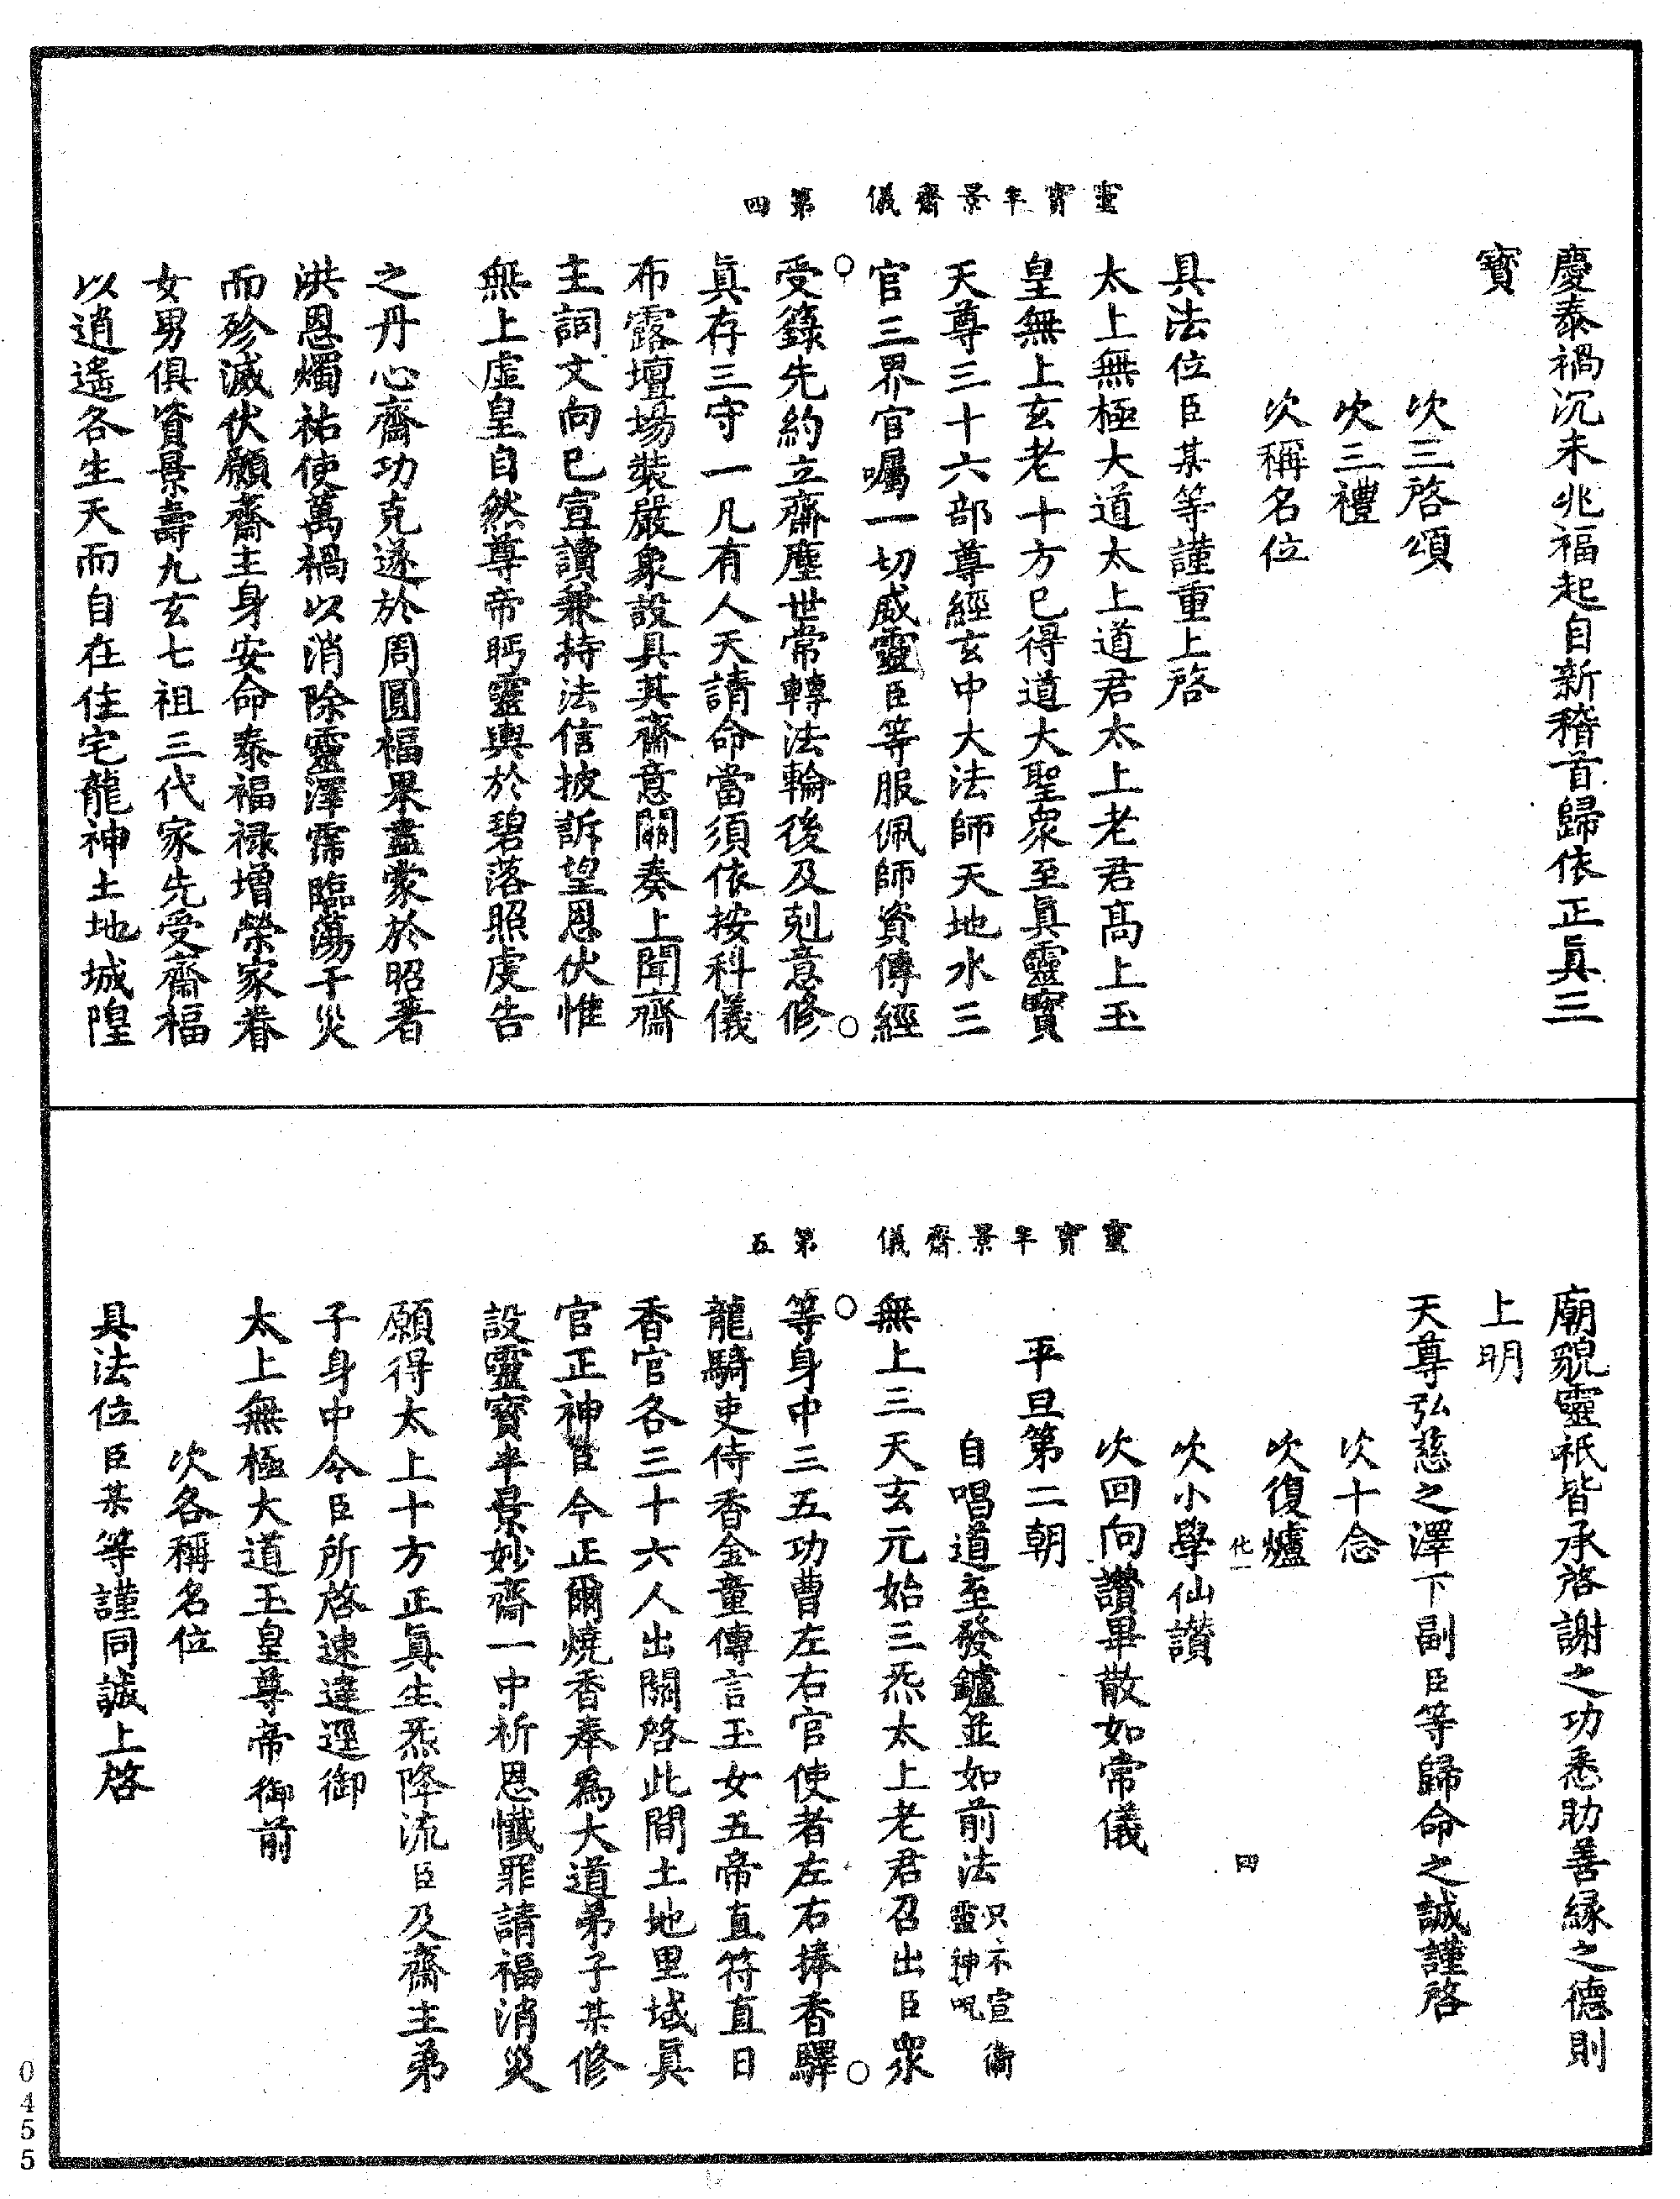 慶泰禍沉未兆福起自新稽首歸依正眞三
寳
次三啓頌
次三禮
次稱名位
具法位臣某等謹重上啓
太上無極大道太上道君太上老君髙上玉
皇無上玄老十方巳得道大聖衆至眞靈寳
天尊三十六部尊經玄中大法師天地水三
官三界官囑一切威靈臣等服佩師資傳經
受籙先約立齋塵世常轉法輪後及剋意修
眞存三守一凡有人天請命當須依按科儀
布露壇場裝嚴象設具其齋意關奏上聞齋
主詞文向巳宣讀兼持法信披訴望恩伏惟
無上虛皇自然尊帝眄靈輿於碧落照虔告
之丹心齋功克遂於周圓福果盡蒙於昭著
洪恩燭祐使萬禍以消除靈澤霈臨蕩千災
而殄滅伏願齋主身安命泰福禄增榮家眷
女男俱資景壽九玄七祖三代家先受齋福
以逍遙各生天而自在住宅龍神土地城隍
靈寳半景齋儀 第四
廟貌靈祇皆承啓謝之功悉助善緣之德則
上明
天尊弘慈之澤下副臣等歸命之誠謹啓
次十念
次復爐
化一 四
次小學仙讃
次回向讚畢散如常儀
平旦第二朝
自唱道至發鑪並如前法只不宣衞靈神呪
無上三天玄元始三炁太上老君召出臣衆
等身中三五功曹左右官使者左右捧香驛
龍騎吏侍香金童傳言玉女五帝直符直日
香官各三十六人出關啓此間土地里域眞
官正神臣今正爾燒香奉爲大道弟子某修
設靈寳半景妙齋一中祈恩懺罪請福消災
願得太上十方正眞生炁降流臣及齋主弟
子身中令臣所啓速達逕御
太上無極大道玉皇尊帝御前
次各稱名位
具法位臣某等謹同誠上啓
靈寳半景齋儀 第五
0455